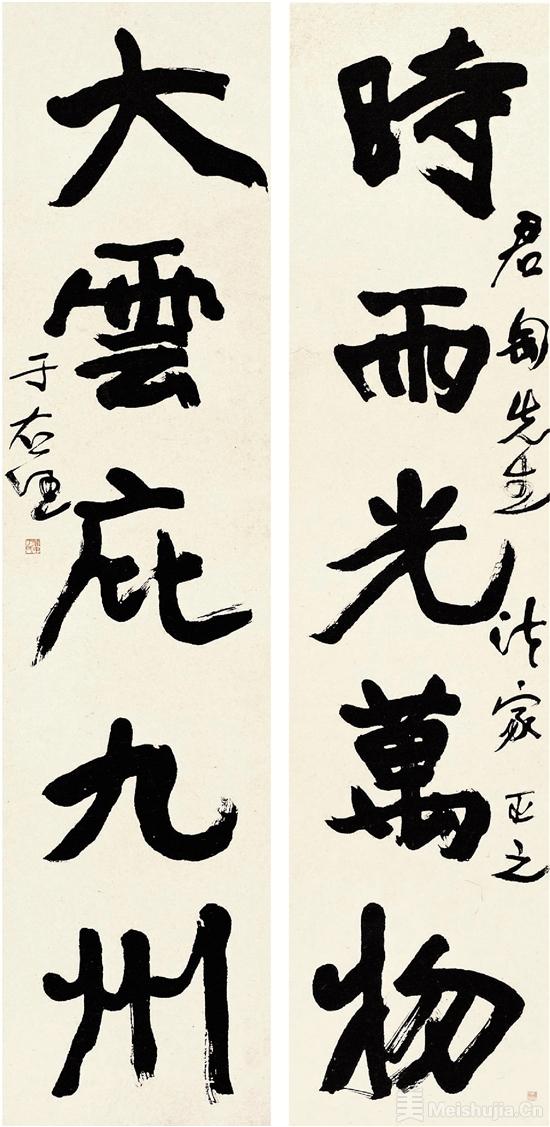 時雨光萬物
君匋先生 法家正之
大雲庇九州
于右任
Meishujia.Cn